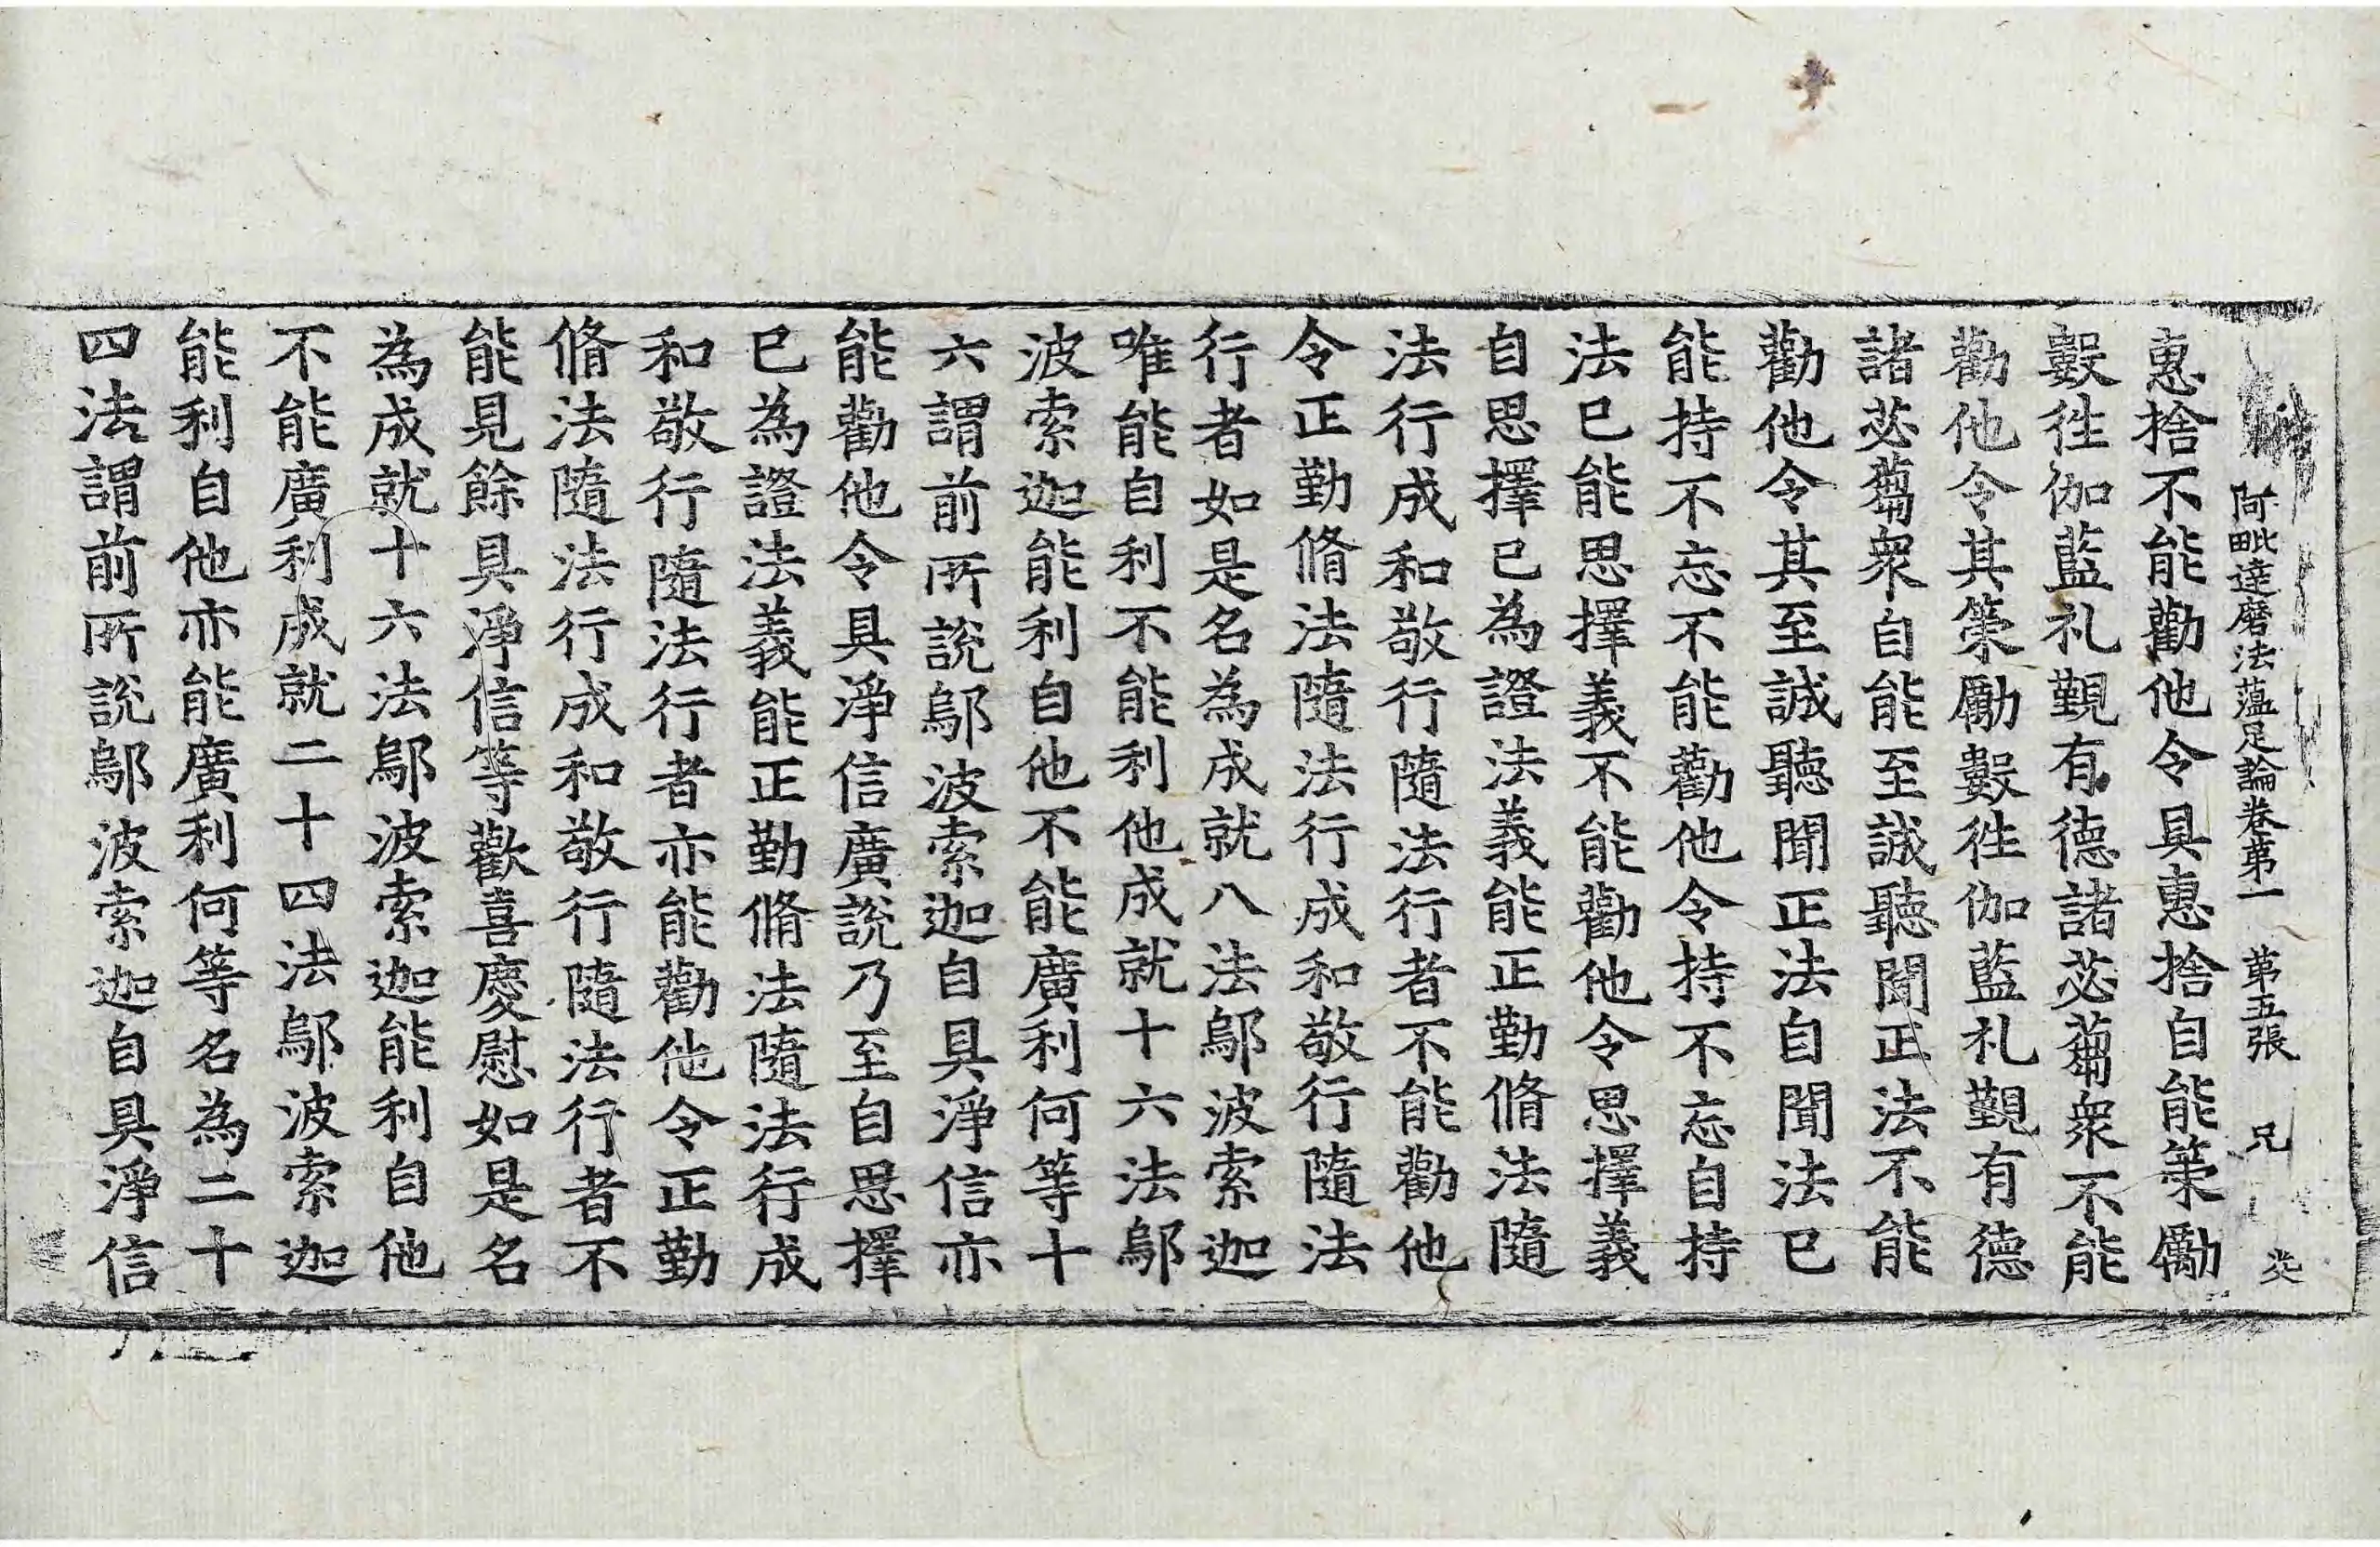 阿毗達磨法蘊足論卷第一 第五張 兄
惠捨不能勸他令具惠捨自能策勵
數往伽藍礼覲有德諸苾蒭衆不能
勸他令其策勵數往伽藍礼覲有德
諸苾蒭衆自能至誠聽聞正法不能
勸他令其至誠聽聞正法自聞法已
能持不忘不能勸他令持不忘自持
法已能思擇義不能勸他令思擇義
自思擇已為證法義能正勤脩法隨
法行成和敬行隨法行者不能勸他
令正勤脩法隨法行成和敬行隨法
行者如是名為成就八法鄔波索迦
唯能自利不能利他成就十六法鄔
波索迦能利自他不能廣利何等十
六謂前所說鄔波索迦自具淨信亦
能勸他令具淨信廣說乃至自思擇
已為證法義能正勤脩法隨法行成
和敬行隨法行者亦能勸他令正勤
脩法隨法行成和敬行隨法行者不
能見餘具淨信等歡喜慶慰如是名
為成就十六法鄔波索迦能利自他
不能廣利成就二十四法鄔波索迦
能利自他亦能廣利何等名為二十
四法謂前所說鄔波索迦自具淨信